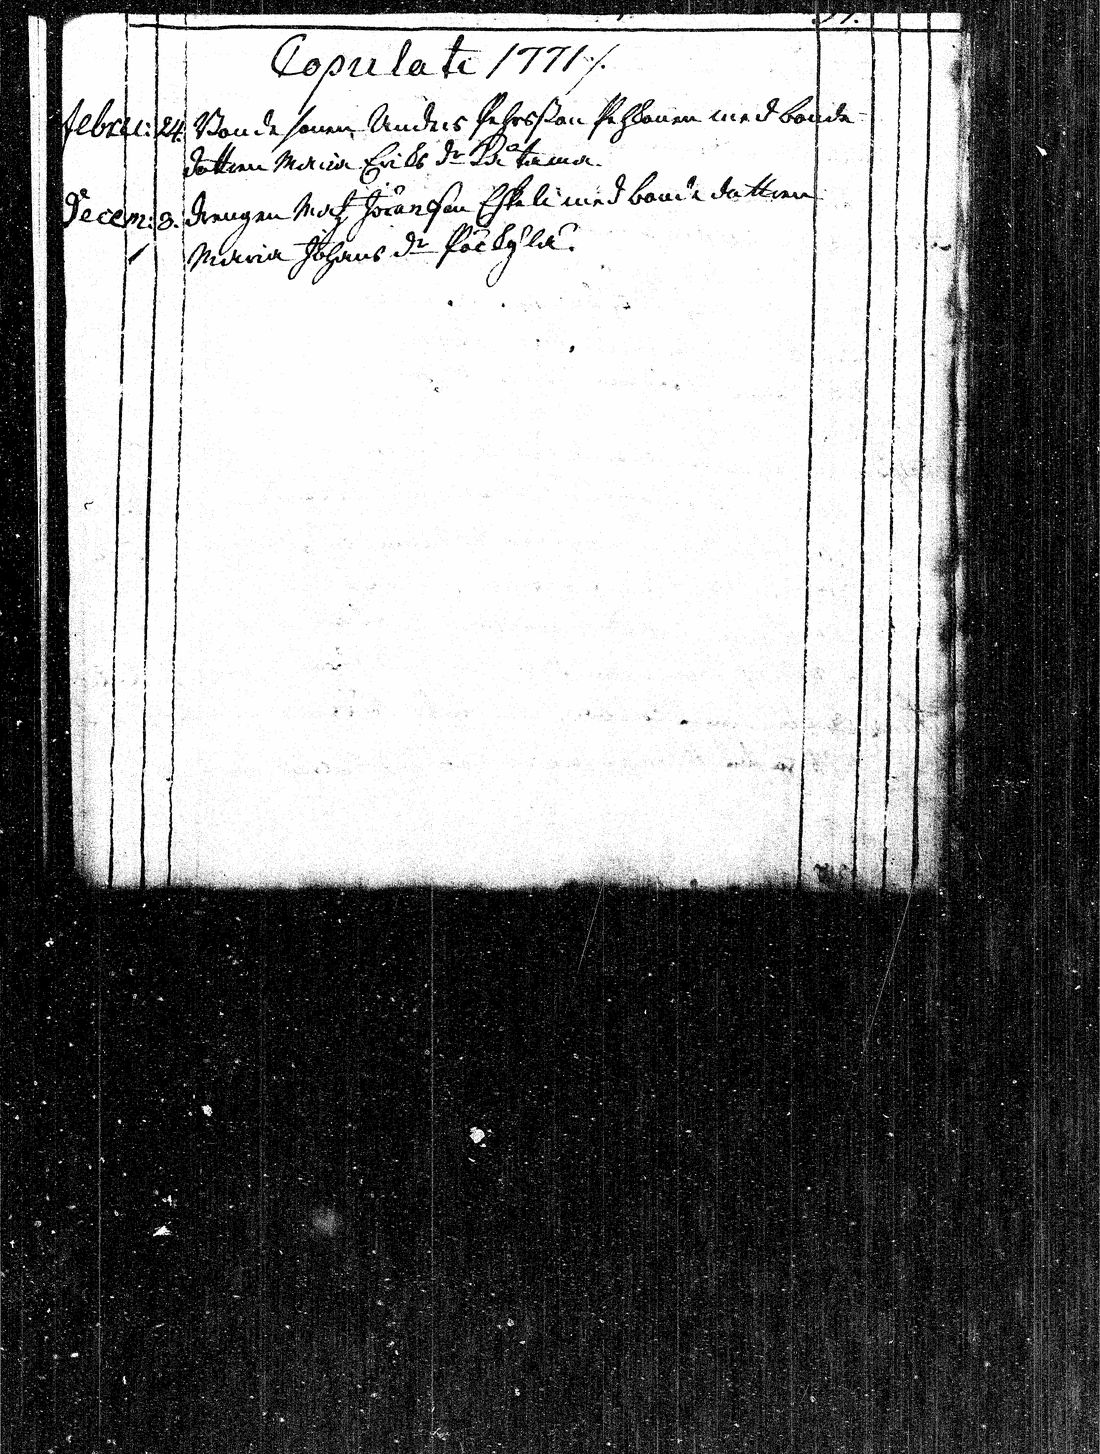 Copulati 1771 ⁒
Februi: 24. Bonde sonen Anders Pehrsson Pehkonen med bonde
dottren Maria Eriks dr
Decem: 3. drengen Matz Jöransson Eskeli med bonde dottren
Maria Johans dr